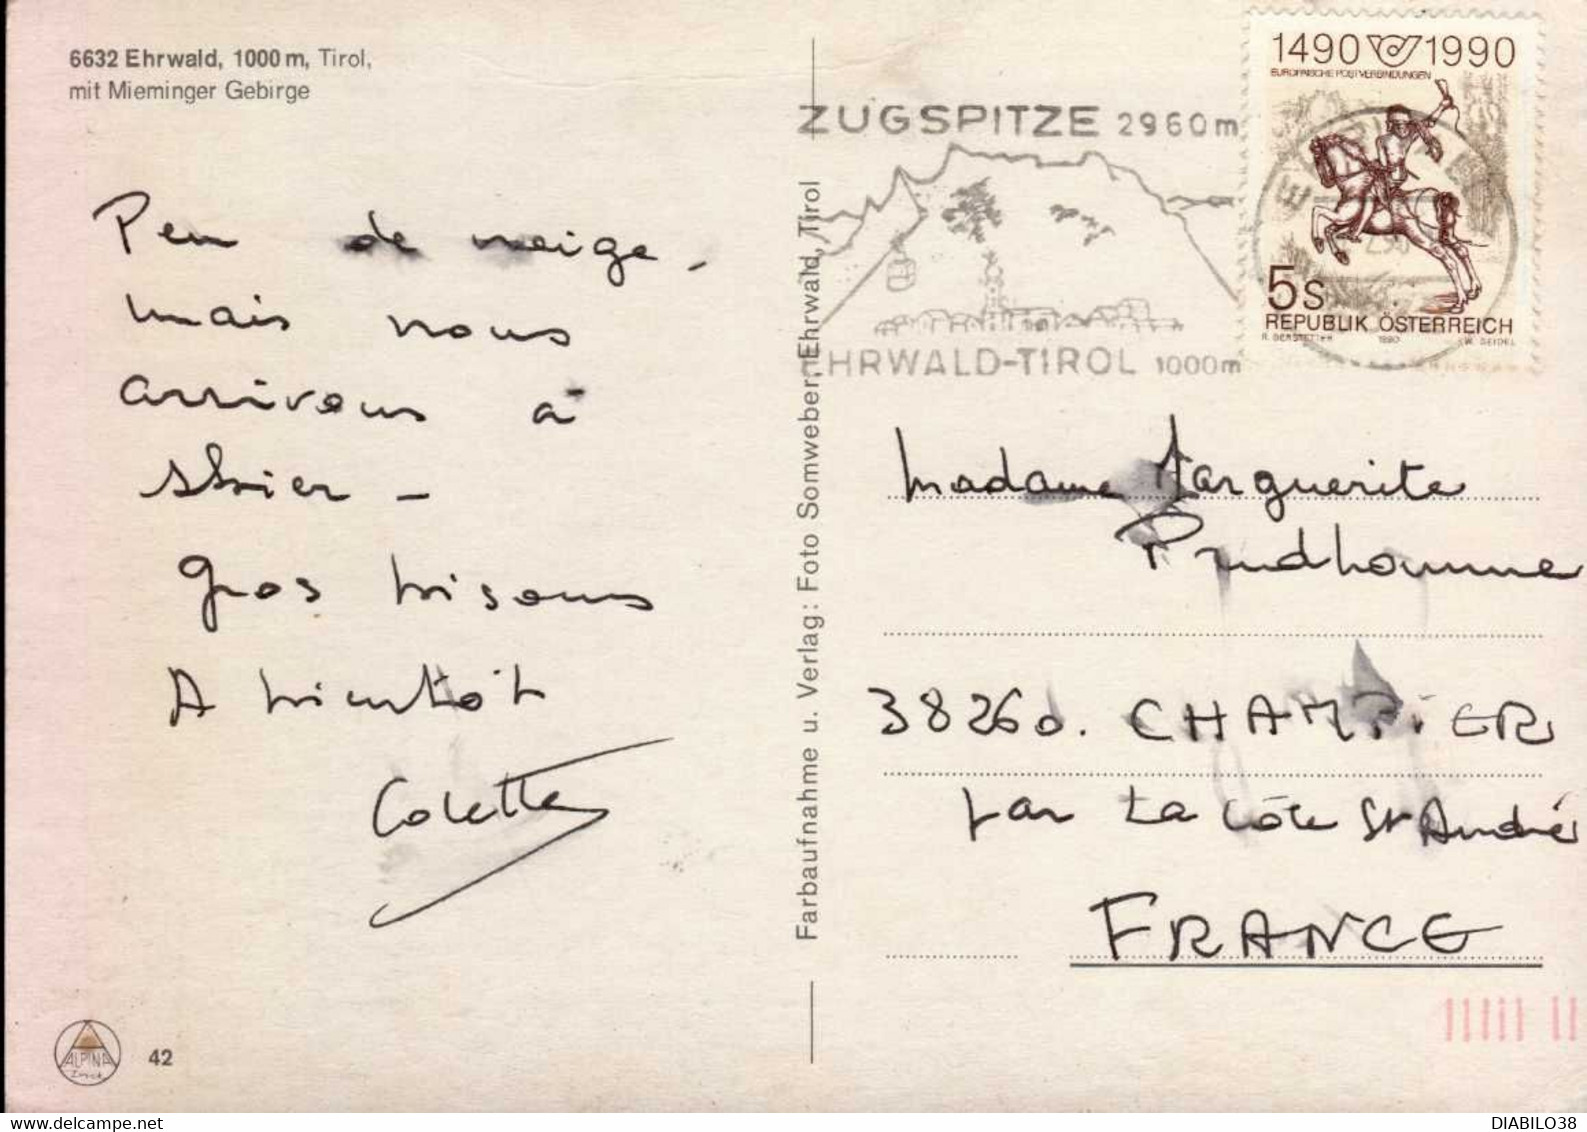 6632 Ehrwald, 1000 m, Tirol,
mit Mieminger Gebirge
Peu de neige,
mais nous
arrivons à
skier -
Gros bisous
A bientôt
Colette
ALPINA
42
Farbaufnahme u. Verlag: Foto Somweber, Ehrwald, Tirol
ZUGSPITZE 2960m
EHRWALD-TIROL 1000m
1490 1990
EUROPÄISCHE POSTVERBINDUNGEN
5s
REPUBLIK ÖSTERREICH
1990 W. SEIDEL
Madame Marguerite
Prudhomme
38260. CHAMPIER
par La Côte St André
FRANCE
DIABILO38